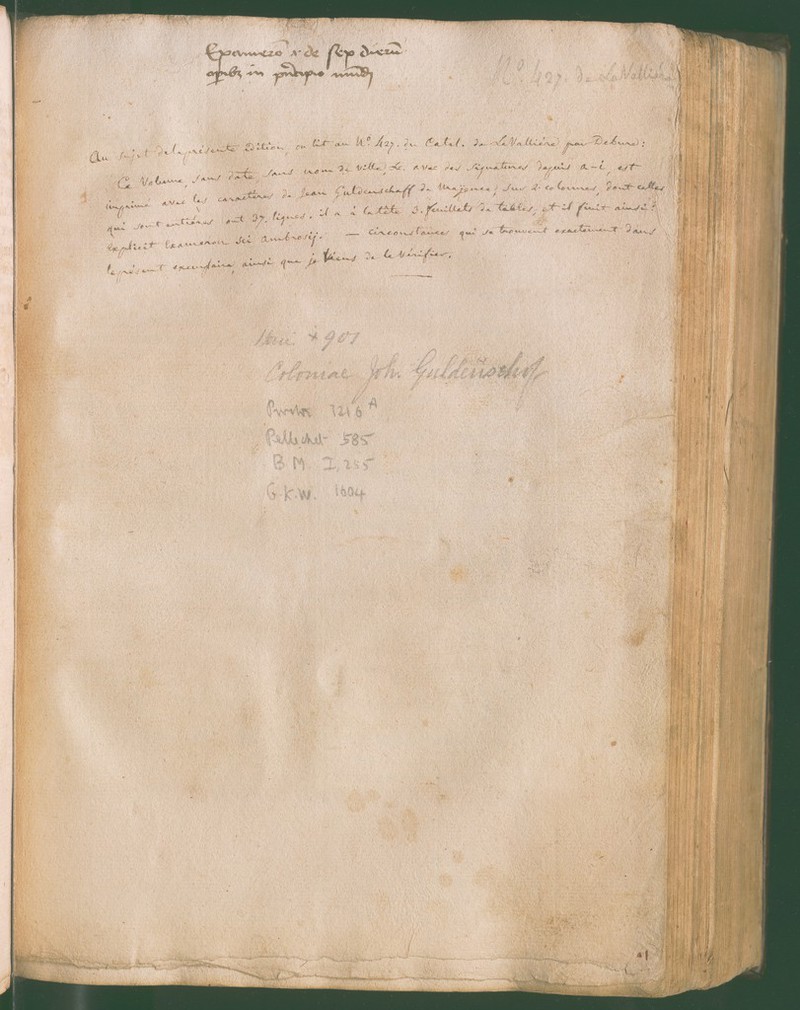 Exameron & de sep dierū
opibꝫ in pncipio mūdi
Nº 427. de LaVallière
Au sujet de la présente Edition, on lit au Nº 427. du Catal. de LaVallière par Debure:
Ce Volume, sans date, sans nom de ville, &. avec des signatures depuis a-i, est
imprimé avec les caractères de Jean Guldenschaff de Mayence; sur 2 colonnes, dont celles
qui sont entières ont 37. lignes. il a à la tête 3. feuillets de tables, et il finit ainsi:
explicit Exameron Sci Ambrosij. — circonstance qui se trouvent exactement dans
le présent exemplaire, ainsi que je viens de le vérifier.
Hain * 901
Coloniae Joh. Guldenschof
Proctor 1216 A
Pellechet 585
B M. I, 255
G.K.W. 1604
a1